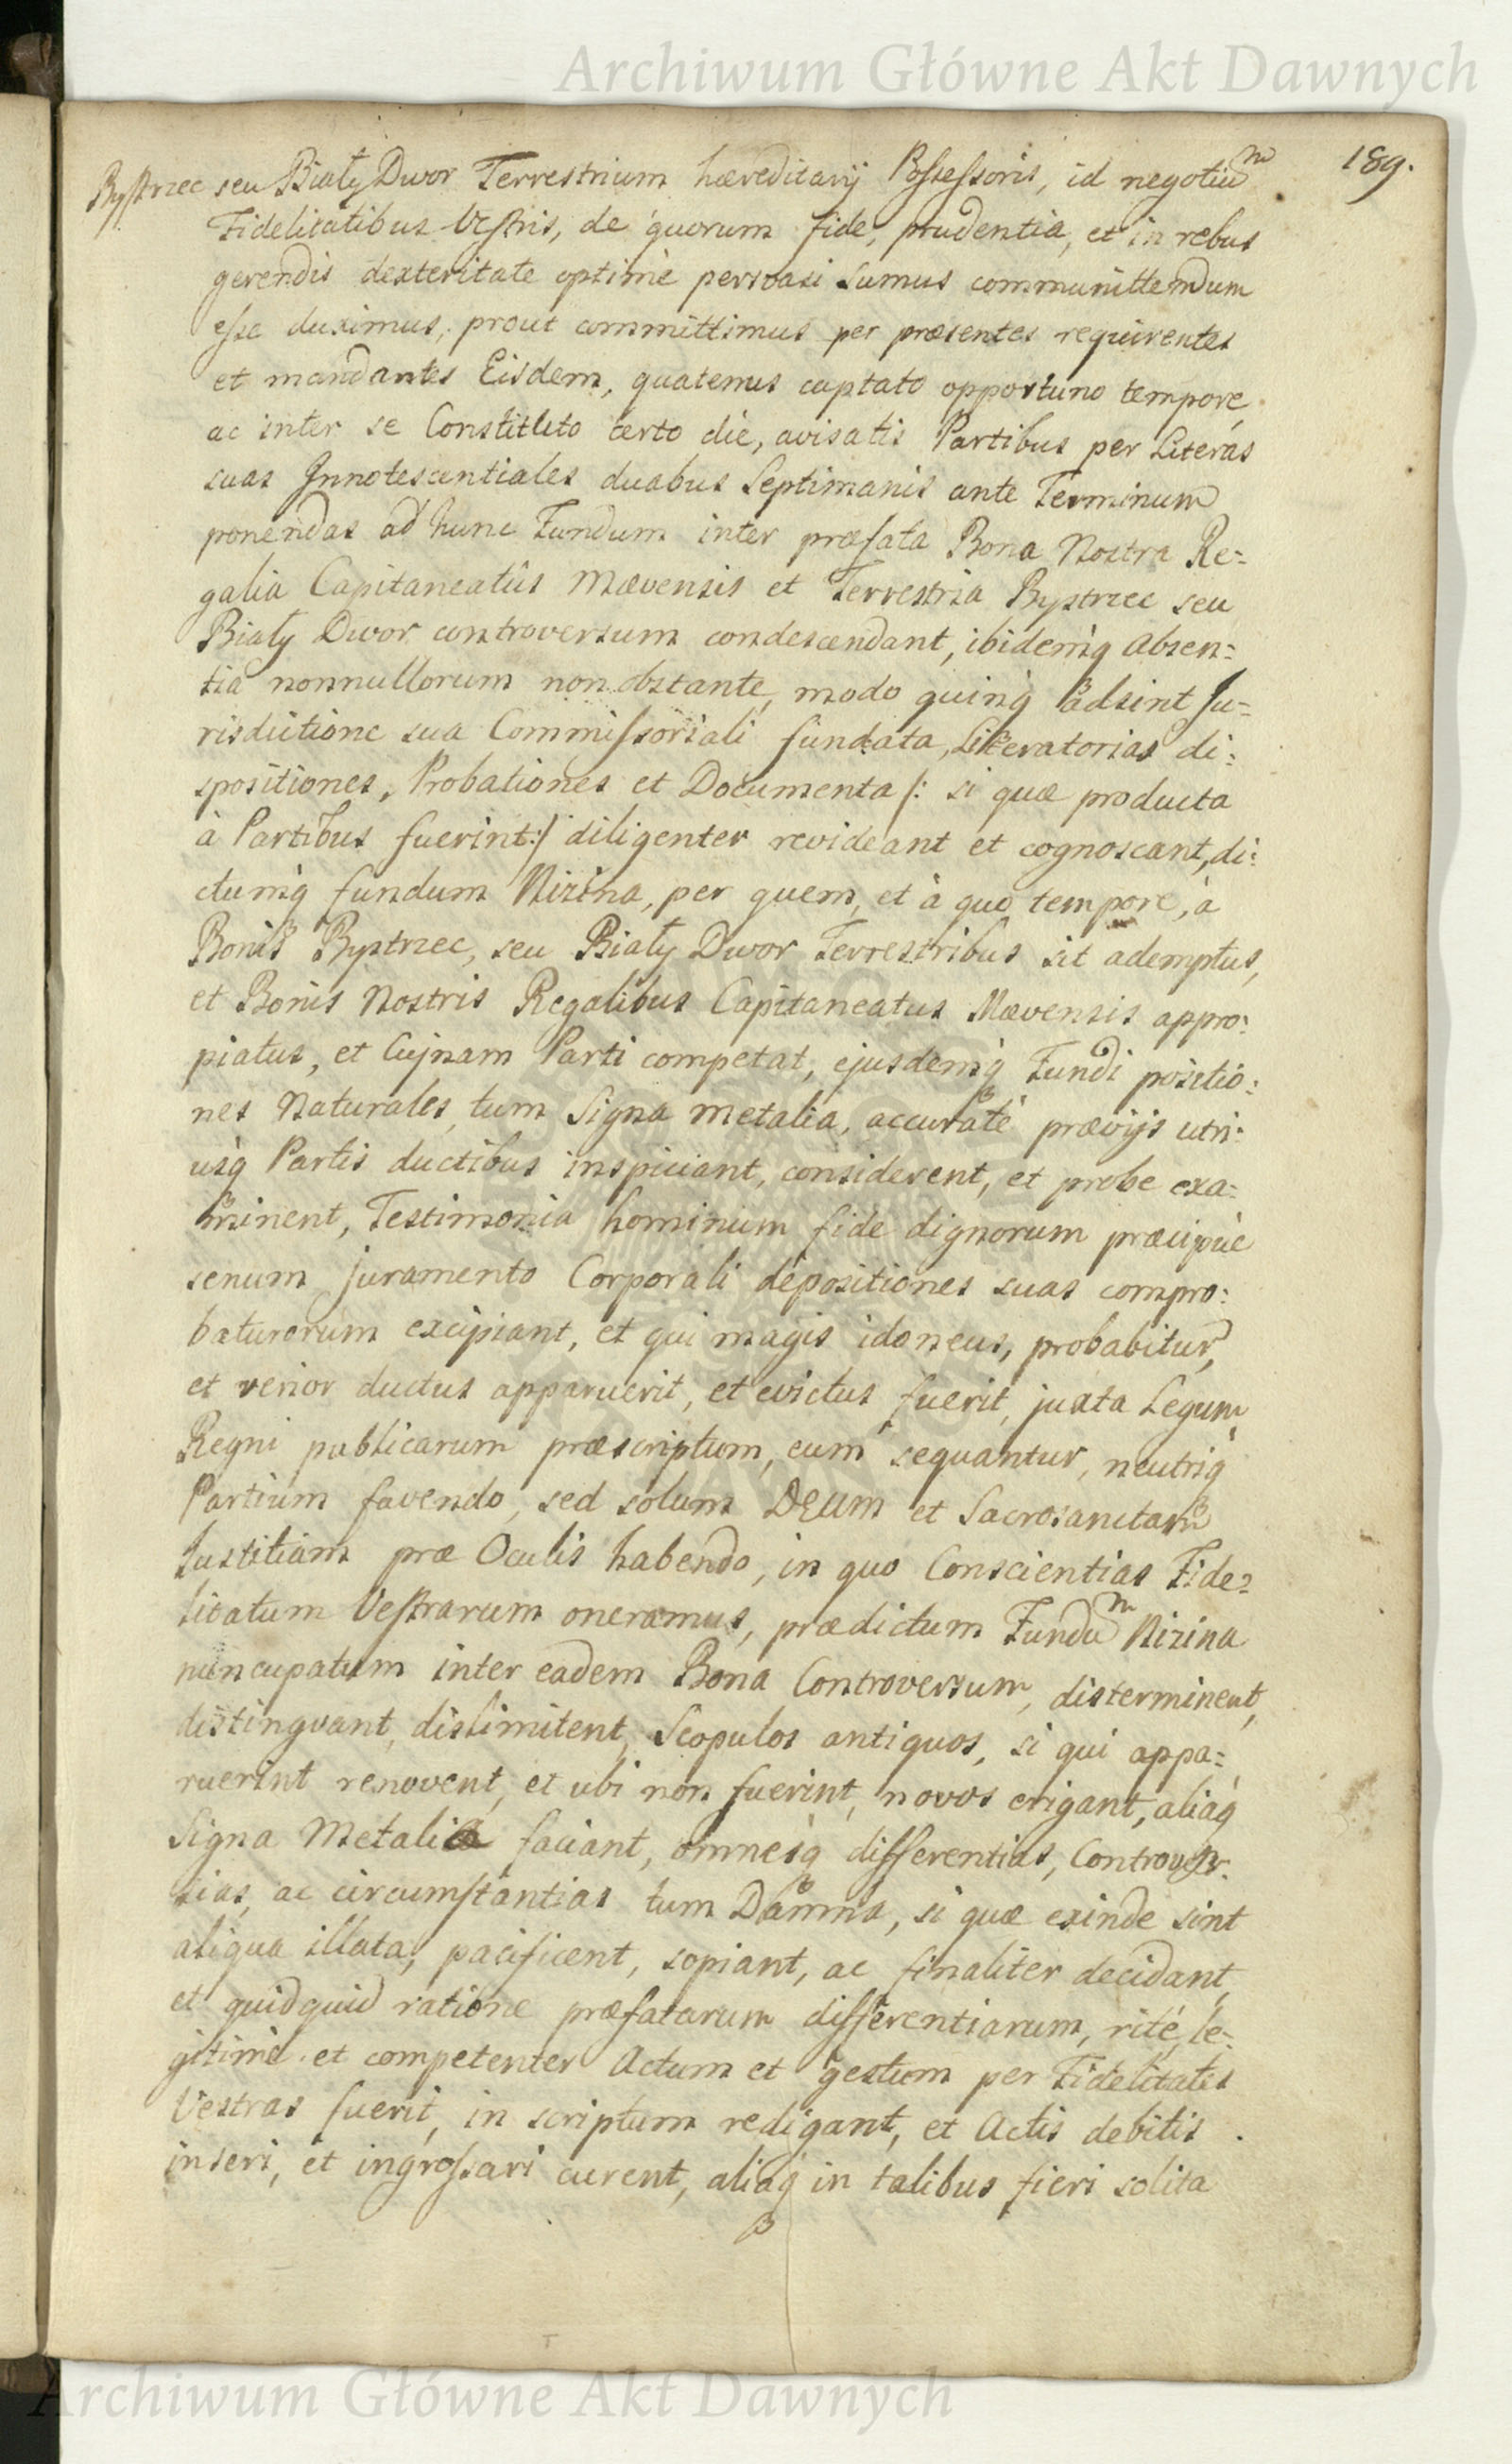 Archiwum Główne Akt Dawnych
189.
Bystrzec seu Biały Dwor Terrestrium hæreditarij Possessoris, id negotiũ
Fidelitatibus Vestris, de quorum fide, prudentia, et in rebus
gerendis dexteritate optimè persvasi sumus communittendum
esse duximus, prout committimus per præsentes requirentes
et mandantes Eisdem, quatenus captato opportuno tempore
ac inter se Constituto certo die, avisatis Partibus per Literas
suas Innotescentiales duabus Septimanis ante Terminum
ponendas ad hunc Fundum inter præfata Bona Nostra Re=
galia Capitaneatûs Mævensis et Terrestria Bystrzec seu
Biały Dwor controversum condescendant, ibidemq́ Absen=
tia nonnullorum non obstante, modo quinq́ adsint Ju=
risdictione sua Commissoriali fundata, Literatorias di=
spositiones, Probationes et Documenta /: si quæ producta
à Partibus fuerint:/ diligenter revideant et cognoscant, di=
ctumq́ fundum Nizina, per quem, et à quo tempore, à
Bonis Bystrzec, seu Biały Dwor Terrestribus sit ademptus,
et Bonis Nostris Regalibus Capitaneatus Mævensis appro=
piatus, et Cujnam Parti competat, ejusdemq́ Fundi positio=
nes Naturales, tum Signa metalia, accuratè prævijs utri=
usq́ Partis ductibus inspiciant, considerent, et probe exa=
minent, Testimonia hominum fide dignorum præcipuè
senum juramento Corporali depositiones suas compro=
baturorum excipiant, et qui magis idoneus, probabitur,
et verior ductus apparuerit, et evictus fuerit, juxta Legum
Regni publicarum præscriptum, eum sequantur, neutriq́
Partium favendo, sed solum DEUM et Sacrosanctam
Justitiam præ Oculis habendo, in quo Conscientias Fide=
litatum Vestrarum oneramus, prædictum Fundũ Nizina
nuncupatum inter eadem Bona Controversum, disterminent,
distingvant, dislimitent, Scopulos antiquos, si qui appa=
ruerint renovent, et ubi non fuerint, novos erigant, aliaq́
Signa Metalia faciant, omnesq́ differentias, Controver=
sias, ac circumstantias tum Damna, si quæ exinde sint
aliqua illata, pacificent, sopiant, ac finaliter decidant,
et quidquid ratione præfatarum differentiarum, ritè, le=
gitimè et competenter Actum et gestum per Fidelitates
Vestras fuerit, in scriptum redigant, et Actis debitis
inseri, et ingrossari curent, aliaq́ in talibus fieri solita
Archiwum Główne Akt Dawnych